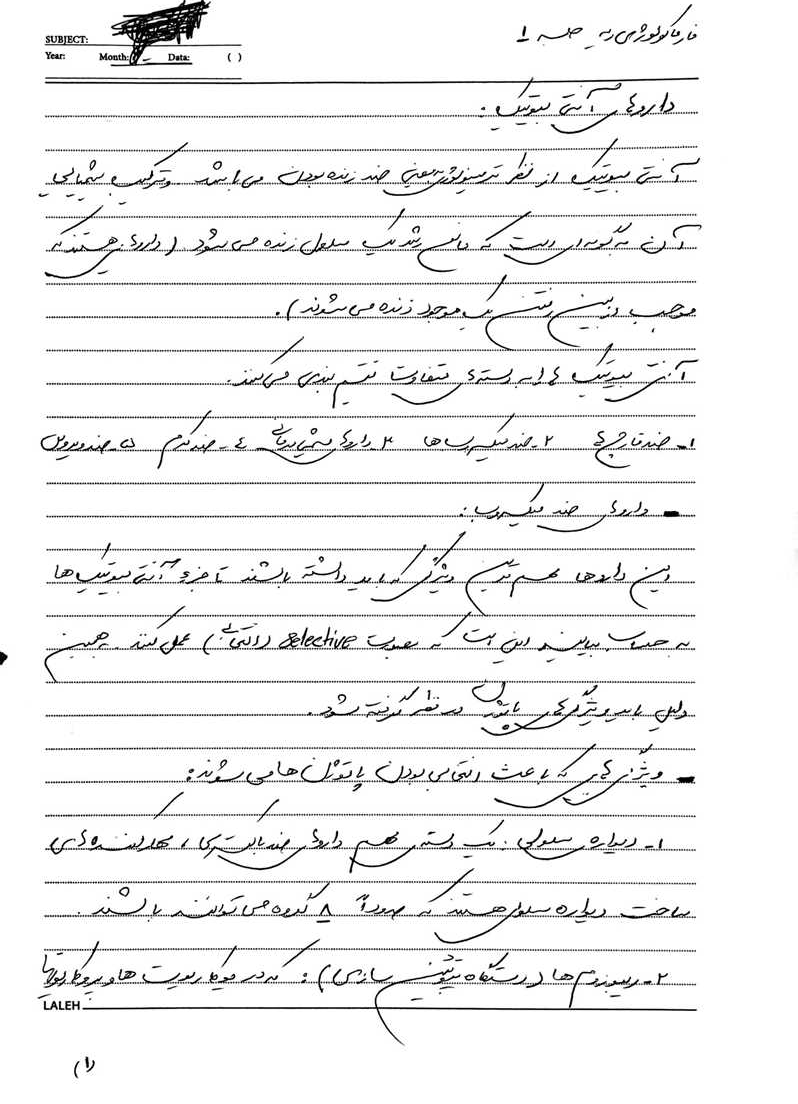 فارماکولوژی ریه جلسه ۱
SUBJECT:
Year: Month: Data: ( )
داروهای آنتی بیوتیک :
آنتی بیوتیک از نظر ترمینولوژی یعنی ضد زنده بودن می باشد و ترکیب شیمیایی
آن به گونه ای است که مانع رشد یک سلول زنده می شود (داروهایی هستند که
موجب از بین رفتن یک موجود زنده می شوند).
آنتی بیوتیک ها را به دسته های متفاوت تقسیم بندی می کنند.
۱- ضد قارچ ها ۲- ضد میکروب ها ۳- داروهای شیمی درمانی ۴- ضد کرم ۵- ضد ویروس
- داروهای ضد میکروب:
این داروها مهم ترین ویژگی که باید داشته باشند تا جزء آنتی بیوتیک ها
به حساب بیایند این است که بصورت selective (انتخابی) عمل کنند. به همین
دلیل باید ویژگی های پاتوژن در نظر گرفته شود.
- ویژگی هایی که باعث انتخابی بودن پاتوژن ها می شوند:
۱- دیواره سلولی: یک دسته ی مهم داروهای ضد باکتری، مهار کننده های
ساخت دیواره سلولی هستند که حدوداً ۸ گروه می توانند باشند.
۲- ریبوزوم ها (دستگاه پروتئین سازی): که در یوکاریوت ها و پروکاریوتها
LALEH
(۱)